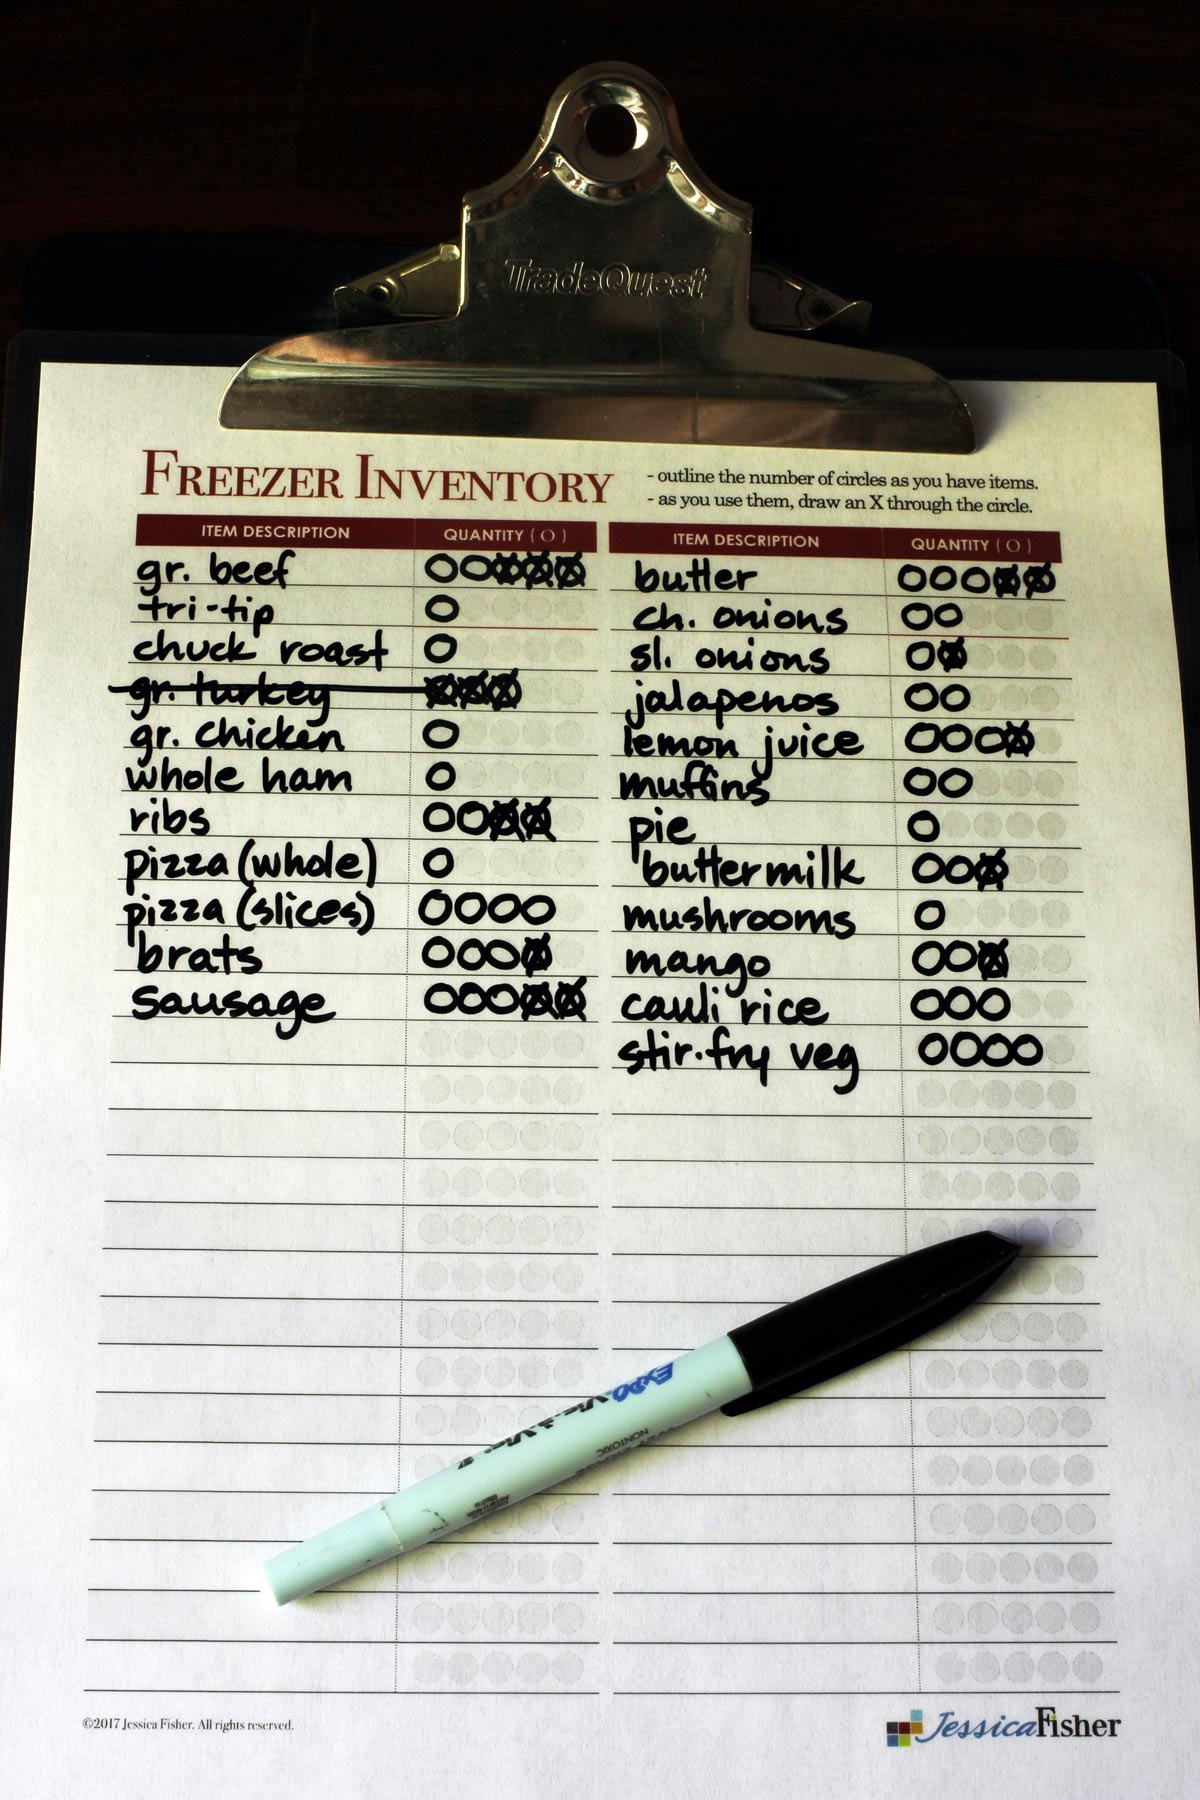 TradeQuest
FREEZER INVENTORY
- outline the number of circles as you have items.
- as you use them, draw an X through the circle.
ITEM DESCRIPTION QUANTITY ( O )
gr. beef
tri-tip
chuck roast
gr. turkey
gr. chicken
whole ham
ribs
pizza (whole)
pizza (slices)
brats
sausage
ITEM DESCRIPTION QUANTITY ( O )
butter
ch. onions
sl. onions
jalapenos
lemon juice
muffins
pie
buttermilk
mushrooms
mango
cauli rice
stir-fry veg
EXPO Vis-à-Vis
NONTOXIC
©2017 Jessica Fisher. All rights reserved.
JessicaFisher